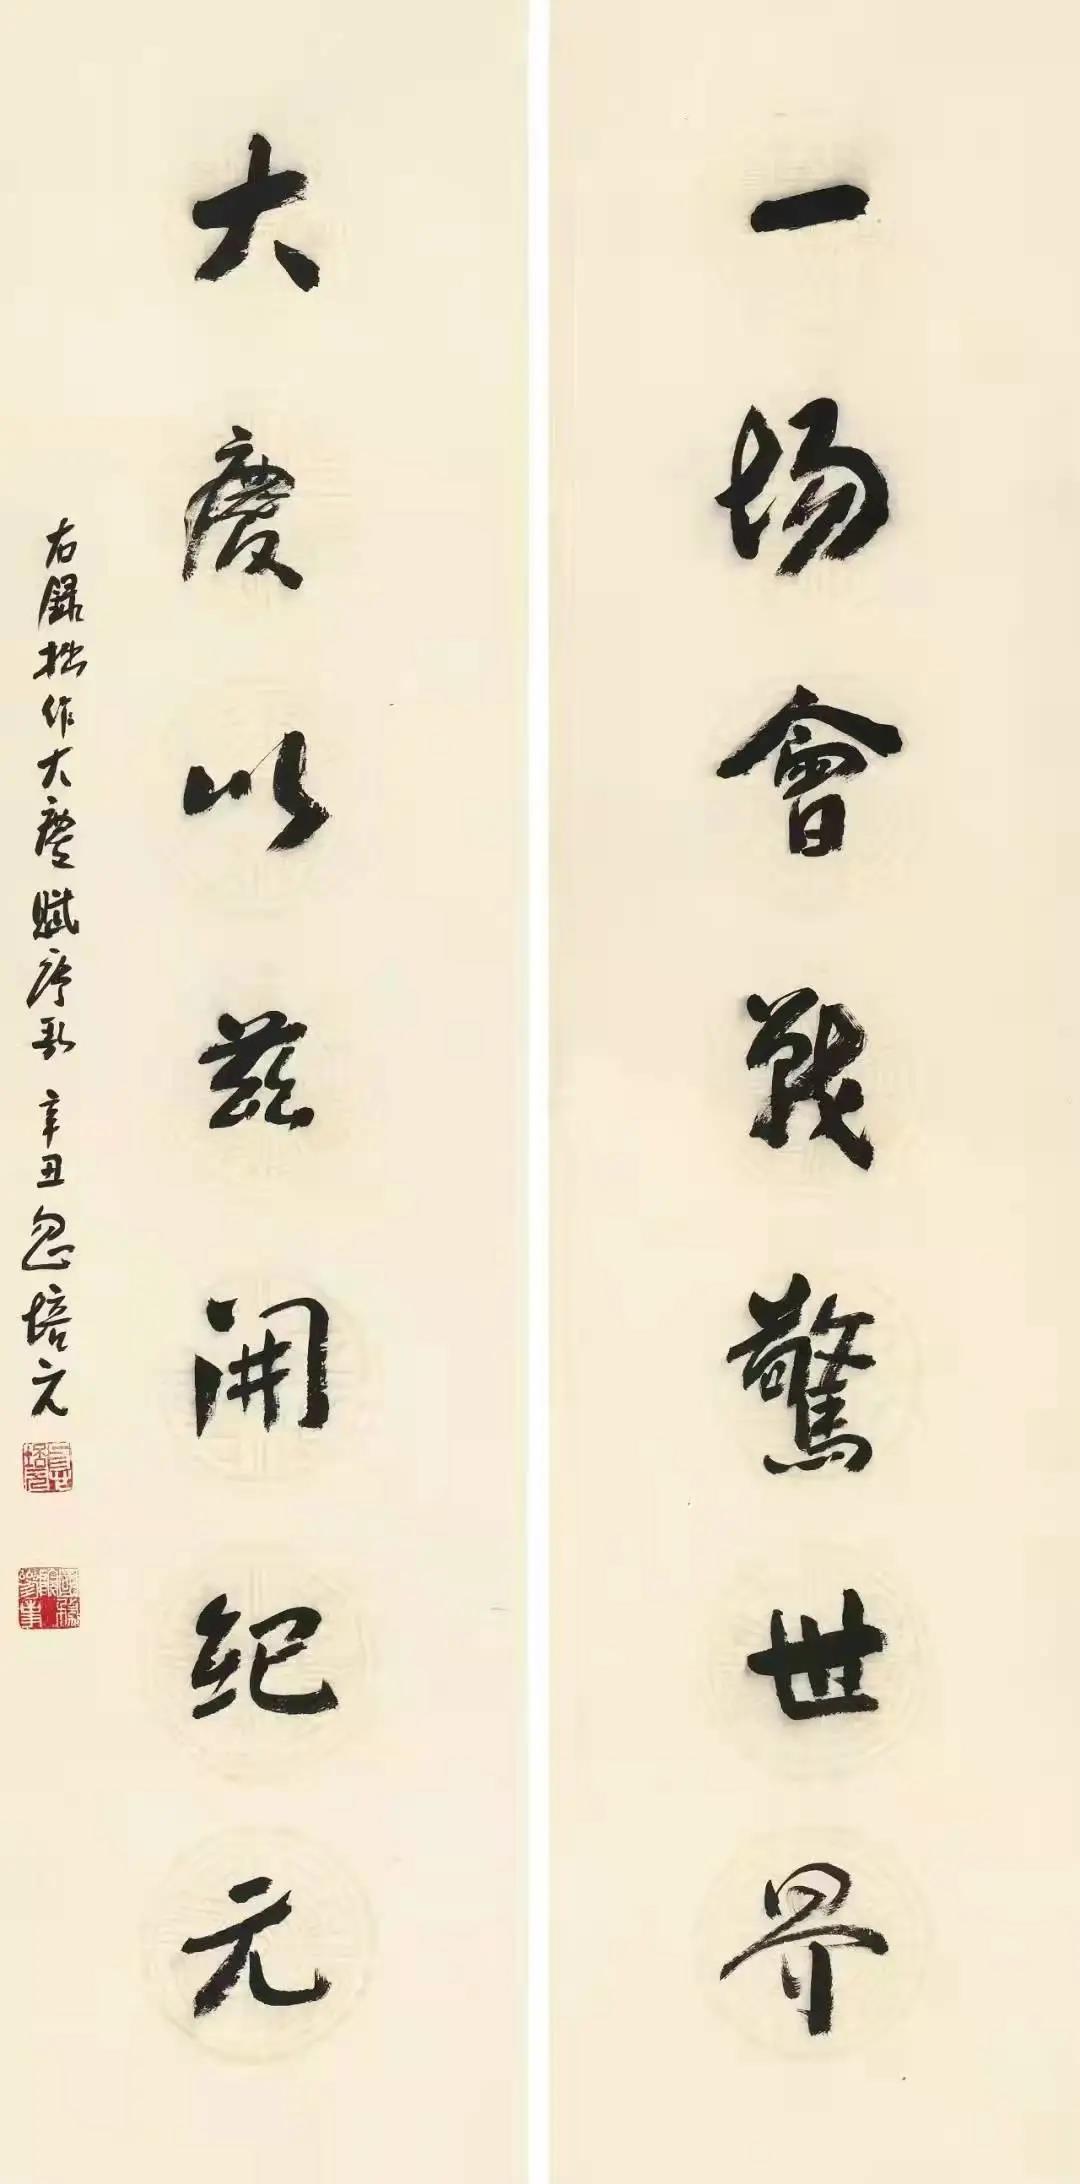 一场會戰驚世界
大慶以茲開紀元
右録拙作大慶賦序歌辛丑忽培元